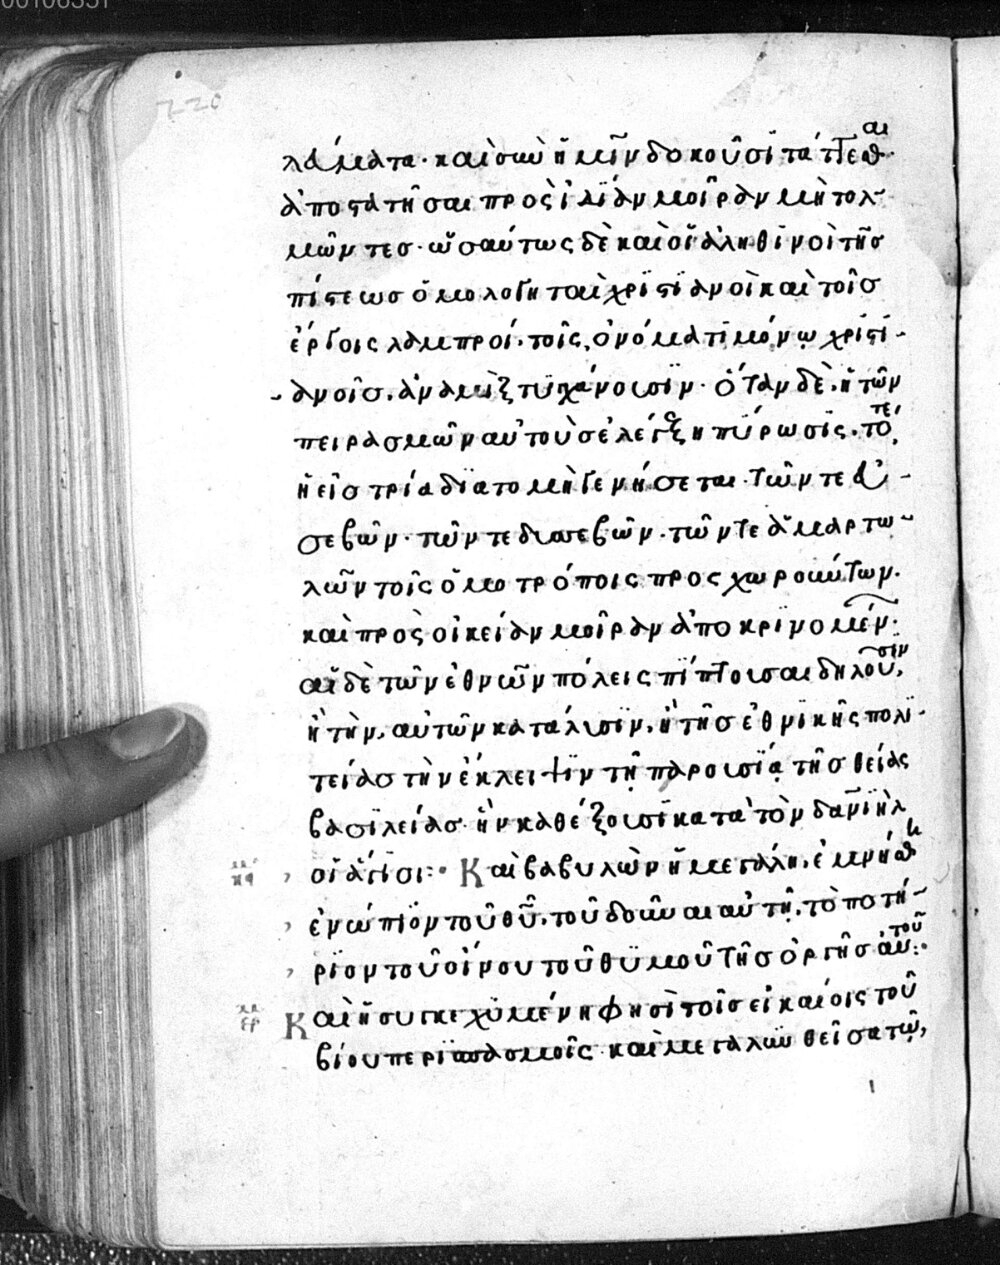 220
λάματα· καὶ σὺν ἡμῖν δοκοῦσι τάττεσθαι
ἀποστατῆσαι πρὸς ἰδίαν μοῖραν μὴ τολ-
μῶντες· ὡσαύτως δὲ καὶ οἱ ἀληθινοὶ τῆς
πίστεως ὁμολογηταὶ χριστιανοὶ καὶ τοῖς
ἔργοις λαμπροί· τοῖς ὀνόματι μόνω χριστι-
ανοῖς, ἀναμὶξ τυγχάνουσιν· ὅταν δὲ, ἡ τῶν
πειρασμῶν αὐτοὺς ἐλέγξη πύρωσις, τότε,
ἡ εἰς τρία διατομὴ γενήσεται· τῶν τε ἀ-
σεβῶν· τῶν τε δυσσεβῶν· τῶν τε ἁμαρτω-
λῶν τοῖς ὁμοτρόποις προσχωρούντων·
καὶ πρὸς οἰκείαν μοῖραν ἀποκρινομέν·
αἱ δὲ τῶν ἐθνῶν πόλεις πίπτουσαι δηλοῦσιν,
ἢ τὴν, αὐτῶν κατάλυσιν, ἢ τῆς ἐθνικῆς πολι-
τείας τὴν ἔκλειψιν τῇ παρουσίᾳ τῆς θείας
βασιλείας· ἣν καθέξουσι κατὰ τὸν δανιὴλ
οἱ ἅγιοι:· Καὶ βαβυλὼν ἡ μεγάλη, ἐμνήσθη
ἐνώπιον τοῦ θυ, τοῦ δοῦναι αὐτῇ, τὸ ποτή-
ριον τοῦ οἴνου τοῦ θυμοῦ τῆς ὀργῆς αὐτοῦ:·
Καὶ ἡ συγκεχυμένη φησὶ τοῖς εἰκαίοις τοῦ
βίου περισπασμοῖς· καὶ μεγαλωθεῖσα τῷ,